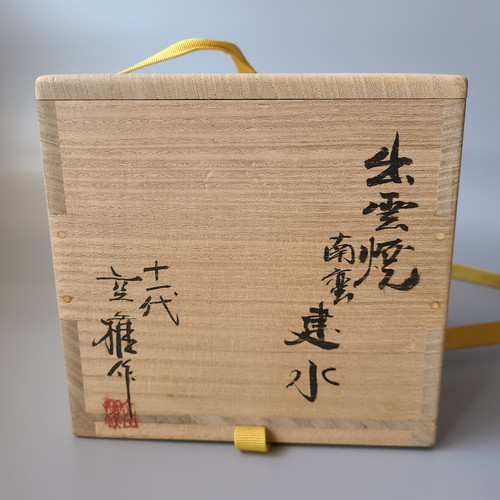 出雲焼
南蛮
建水
十一代
空雄作